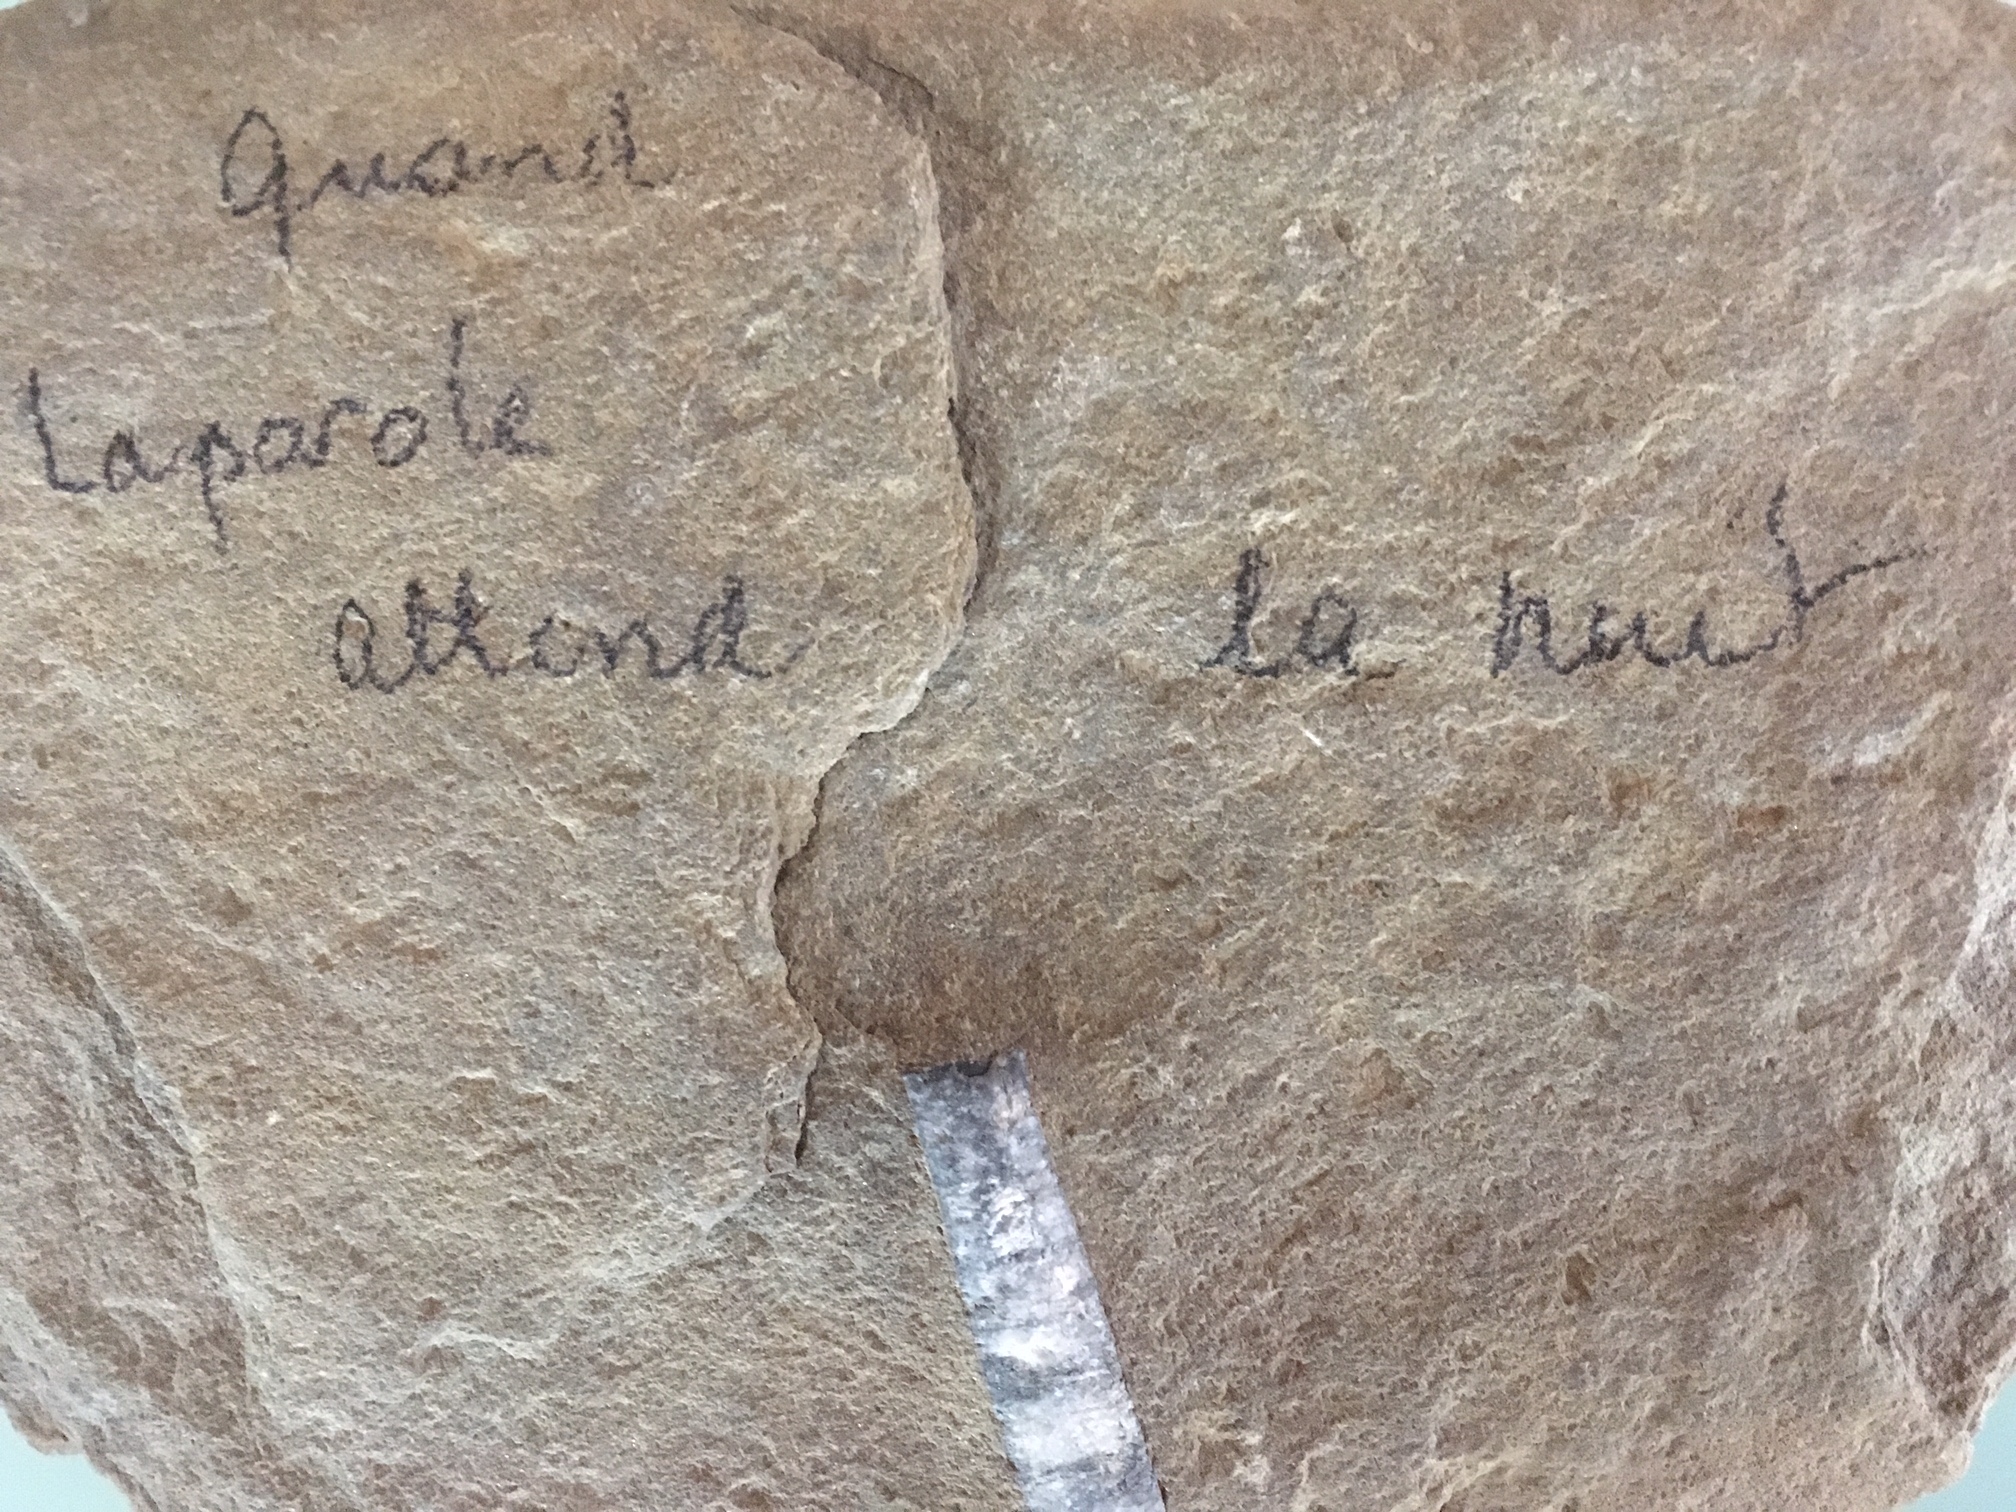 Quand
La parole
attend
la nuit